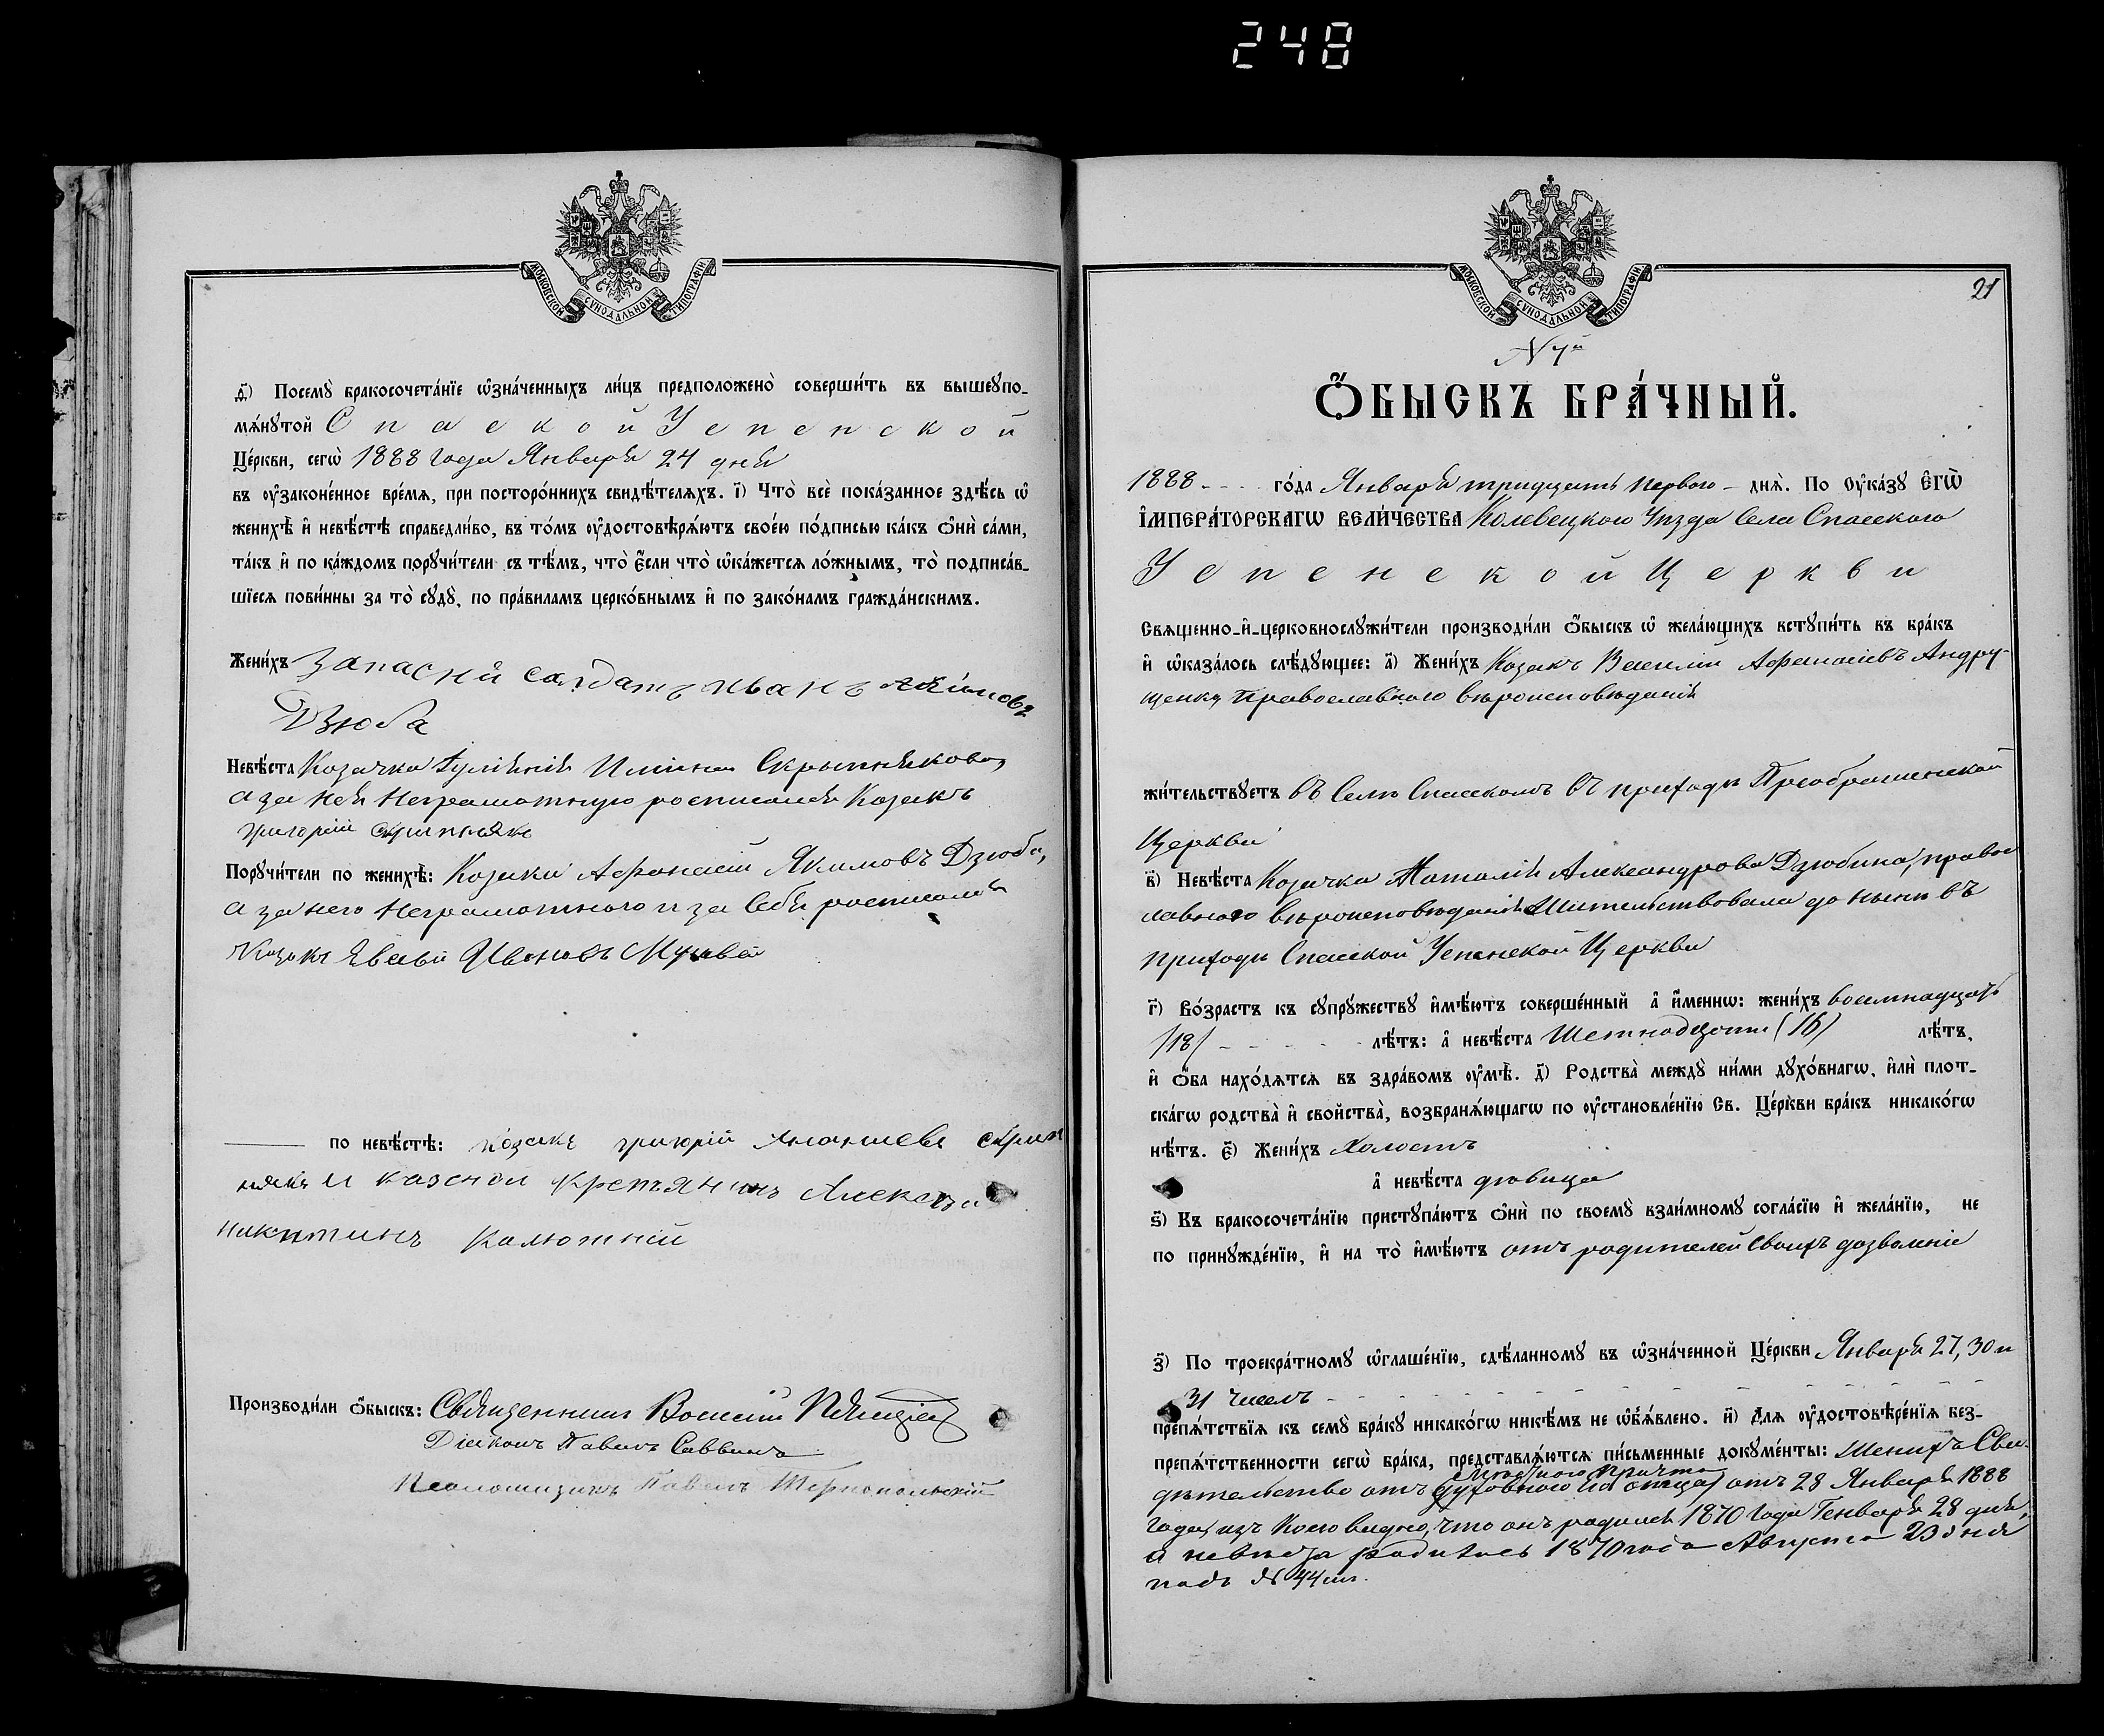 248
МОСКОВСКОЙ СѴНОДАЛЬНОЙ ТИПОГРАФІИ
д҃) Посемꙋ̀ бракосочета́нїе ѡ҆зна́ченныхъ ли́цъ предположено̀ соверши́ть въ вышеꙋпо-
мѧ́нꙋтой Спаской Успенской
Це́ркви, сегѡ̀ 1888 года Января 24 дня
въ ᲂу҆законе́нное вре́мѧ, при посторо́ннихъ свидѣ́телѧхъ. і҃) Что̀ всѐ пока́занное здѣ́сь ѡ҆
женихѣ̀ и҆ невѣ́стѣ справедли́во, въ то́мъ ᲂу҆достовѣрѧ́ютъ свое́ю по́дписью ка́къ ѻ҆нѝ са́ми,
та́къ и҆ по ка́ждомъ порꙋчи́тели съ тѣ́мъ, что̀ є҆́сли что̀ ѡ҆ка́жетсѧ ло́жнымъ, то̀ подписа́в-
шїесѧ пови́нны за то̀ сꙋдꙋ̀, по пра́виламъ церко́внымъ и҆ по зако́намъ гражда́нскимъ.
Жени́хъ Запасній салдатъ Иванъ Акимовъ
Дзюба
Невѣ́ста Козачка Скрыпнякова,
а за нея неграмотную росписался Козакъ
григорій скрипнякъ
Порꙋчи́тели по женихѣ̀: Козаки Афанасій Якимовъ Дзюба,
а за него неграмотного и за себя росписался
Козакъ Ивановъ
по невѣ́стѣ: козакъ григорій Ананиевъ скрип
някъ и казеной Крестянинъ Алексѣй
никитинъ Калюжній
Производи́ли ѻ҆́быскъ: Священникъ Василій
Діаконъ Павелъ Саввинъ
Псаломщикъ Павелъ Тернопольскій
МОСКОВСКОЙ СѴНОДАЛЬНОЙ ТИПОГРАФІИ
21
N 7й
Ѻ҆́БЫСКЪ БРА́ЧНЫЙ.
1888 - - - го́да Января тридцать первого - днѧ̀. По Оу҆ка́зꙋ Є҆ГѠ̀
І҆МПЕРА́ТОРСКАГѠ ВЕЛИ́ЧЕСТВА Уѣзда Села Спасского
Успенской Церкви
Свѧщенно-и҆-церковнослꙋжи́тели производи́ли ѻ҆́быскъ ѡ҆ жела́ющихъ встꙋпи́ть въ бра́къ
и҆ ѡ҆каза́лось слѣ́дꙋющее: а҃) Жени́хъ Козакъ Василій Афанасіевъ Андру-
щенко, православного вѣроисповѣданія
жи́тельствꙋетъ въ Селѣ Спасскомъ въ приходѣ Преображенской
Церкви
в҃) Невѣ́ста Козачка Наталія Александрова Дзюбина, право
славного вѣроисповѣданія жительствовала до нынѣ въ
приходѣ Спасской Успенской Церкви
г҃) Во́зрастъ къ сꙋпрꙋ́жествꙋ и҆мѣ́ютъ соверше́нный а҆ и҆́меннѡ: жени́хъ восемнадцать
/18/ - - - - - лѣ́тъ: а҆ невѣ́ста Шестнадцати (16) лѣ́тъ,
и҆ ѻ҆́ба нахо́дѧтсѧ въ здра́вомъ ᲂу҆мѣ̀. д҃) Родства̀ междꙋ̀ ни́ми дꙋхо́внагѡ, и҆лѝ плот-
ска́гѡ родства̀ и҆ свойства̀, возбранѧ́ющагѡ по ᲂу҆становле́нїю Св. Це́ркви бра́къ никако́гѡ
нѣ́тъ. є҃) Жени́хъ Холостъ
а҆ невѣ́ста дѣвица
ѕ҃) Къ бракосочета́нїю пристꙋпа́ютъ ѻ҆нѝ по своемꙋ̀ взаи́мномꙋ согла́сїю и҆ жела́нїю, не
по принꙋжде́нїю, и҆ на то̀ и҆мѣ́ютъ отъ родителей своихъ дозволеніе
з҃) По троекра́тномꙋ ѡ҆глаше́нїю, сдѣ́ланномꙋ въ ѡ҆зна́ченной Це́ркви Января 27, 30 и
31 чиселъ - - -
препѧ́тствїѧ къ семꙋ̀ бра́кꙋ никако́гѡ никѣ́мъ не ѡ҆б̾ѧ́влено. и҃) Длѧ ᲂу҆достовѣре́нїѧ без-
препѧ́тственности сегѡ̀ бра́ка, представлѧ́ютсѧ пи́сьменные докꙋме́нты: женихъ Сви-
мѣстного причта
дѣтельство отъ духовного отца отъ 28 Января 1888
года, изъ коего видно, что онъ родился 1870 года Генваря 28 дня,
а невѣста родилась 1870 года Августа 23 дня
подъ № 44